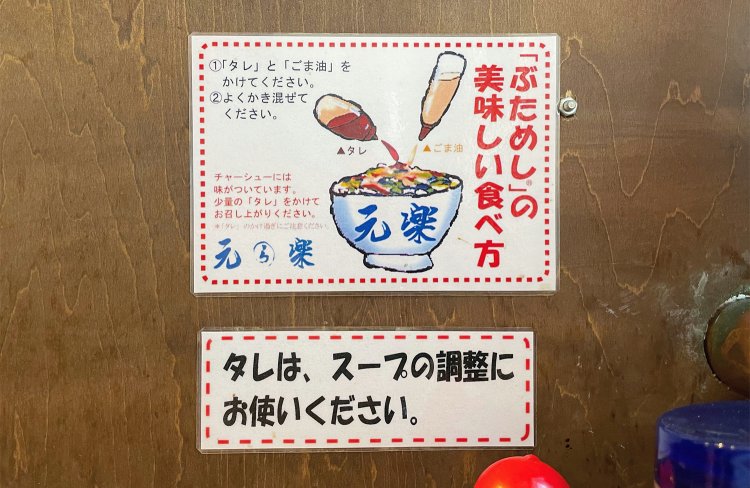 「ぶためし」®の
美味しい食べ方
①「タレ」と「ごま油」を
かけてください。
②よくかき混ぜて
ください。
▲タレ
▲ごま油
元楽
チャーシューには
味がついています。
少量の「タレ」をかけて
お召し上がりください。
※「タレ」のかけ過ぎにご注意ください。
元 楽
タレは、スープの調整に
お使いください。